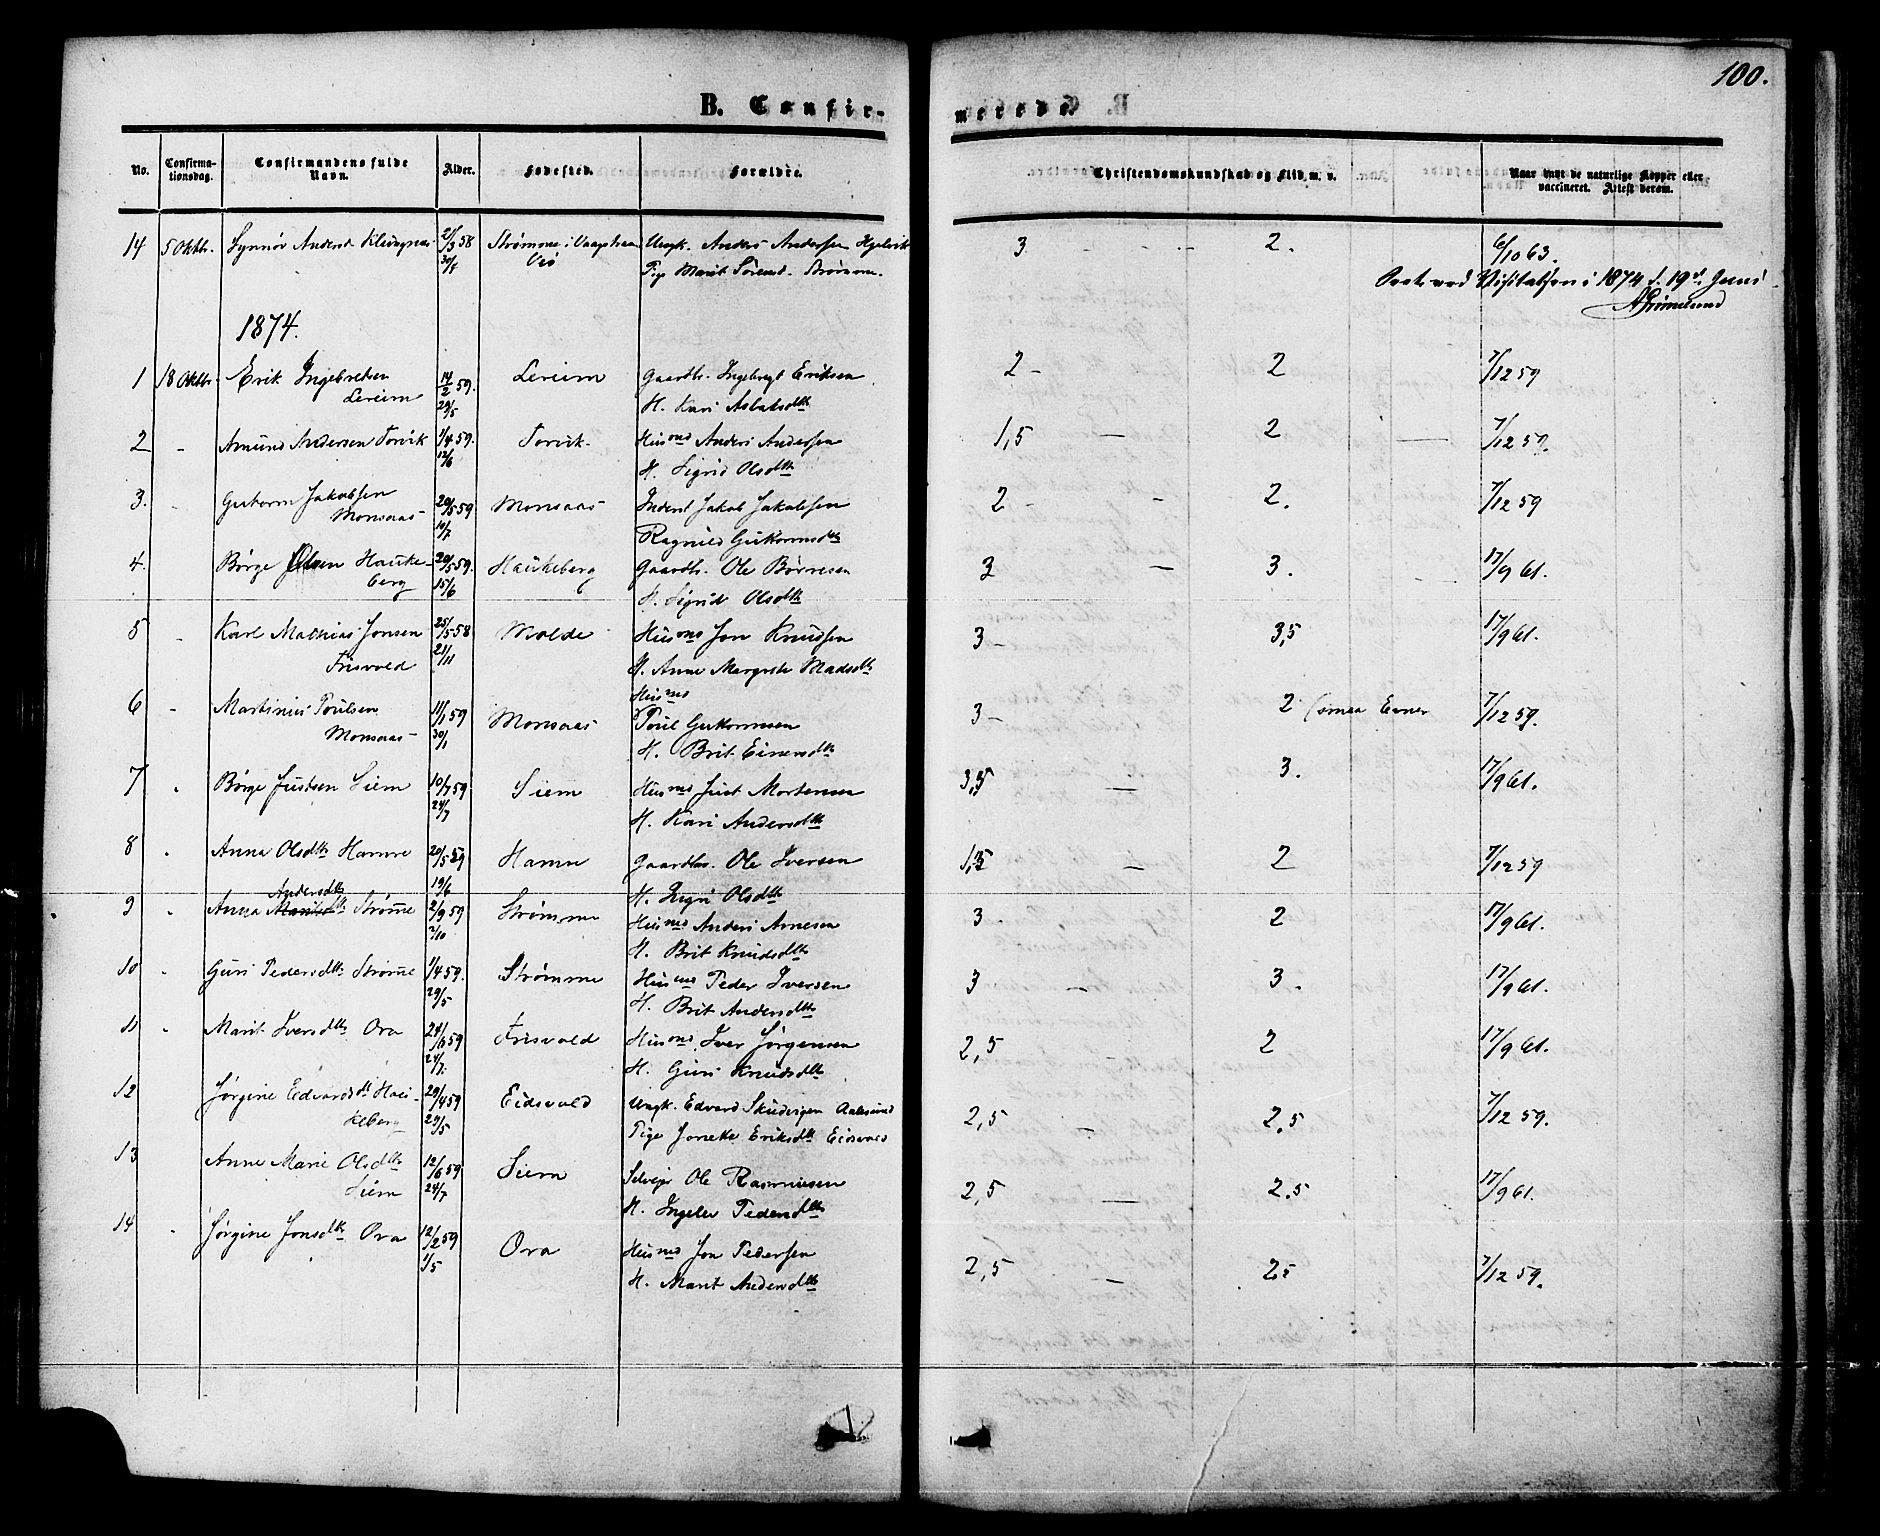 100.
B. Confir-
merede.
No.
Confirma-
tionsdag.
Confirmandens fulde
Navn.
Alder.
Fødested.
Forældre.
Christendomskundskab og Flid, m. v.
Naar havt de naturlige Kopper eller
vaccineret. Attest derom.
14 5 Oktbr. Synnøv Andersd 21/3 58 Strømme i Vaagstran Ungk. Anders Andersen Hjelvik 3 - - - 2. 6/10 63.
30/5 Veø Pige Marit
ved Visitatsen i 1874 d. 19d Juni
AGrimelund
1874.
1 18 Oktbr. Erik Ingebretsen 14/2 59. Lereim Gaardbr. Ingebregt Eriksen 2 - 2 7/12 59
Lereim 29/5 H. Kari Aslaksdtr
2 - Amund Andersen Torvik 1/4 59. Torvik Husmd Anders Andersen 1,5 - 2 - 7/12 59.
12/6 H. Sigrid Olsdtr
3. Gutorm Jakobsen 20/5 59 Monsaas Inderst Jakob Jakobsen 2 - - 2. 7/12 59
Monsaas 10/7 Ragnild Gutormsdtr
4. Børge Olsen Hauke- 20/5 59. Haukeberg Gaardbr. Ole Børresen 3 - 3. 17/9 61.
berg 15/6 H. Sigrid Olsdtr
5 Karl Mathias Jonsen 25/5 58 Molde Husmd Jon Knudsen 3 - 3,5 17/9 61.
Frisvold 21/11 H. Anne Margrete Madsdtr
6 - Martinus Poulsen 11/1 59 Monsaas Husmd 3 - 2 (smaa Evner 7/12 59.
Monsaas 30/1 Poul Gutormsen
H. Brit Einersdtr
7 Børge Justsen Siem 10/7 59 Siem Husmd Just Mortensen 3,5 - 3. 17/9 61.
24/7 H. Kari Andersdtr
8 Anna Olsdtr Hamre 20/5 59 Hamre Gaardbr. Ole Iversen 1,5 - 2 7/12 59
19/6 H. Ingri Olsdtr
Andersdtr
9 Anna Strømme 2/9 59 Strømme Husmd Anders Arnesen 3 - 2 17/9 61.
2/10 H. Brit Knudsdtr
10 Guri Pedersdtr Strømme 1/4 59. Strømme Husmd Peder Iversen 3 - 3. 17/9 61.
29/5 H. Brit Andersdtr
11 Marit Iversdtr Ora 24/6 59 Frisvold Husmd Iver Jørgensen 2,5 - 2 17/9 61.
24/7 H. Guri Knudsdtr
12 Jørgine Edvardsdtr Hau- 20/4 59 Eidsvold Ungk. Edvard Aalesund 2,5 - 2,5 7/12 59.
keberg 29/5 Pige Eriksdtr Eidsvold
13 Anne Marie Olsdtr 12/6 59 Siem Selvejer Ole Rasmussen 2,5 - 2.5 17/9 61.
Siem 24/7 H. Ingeber Pedersdtr
14 Jørgine Jonsdtr Ora 12/2 59 Ora Husmd Jon Pedersen 2,5 - 25 7/12 59.
1/5 H. Marit Andersdtr